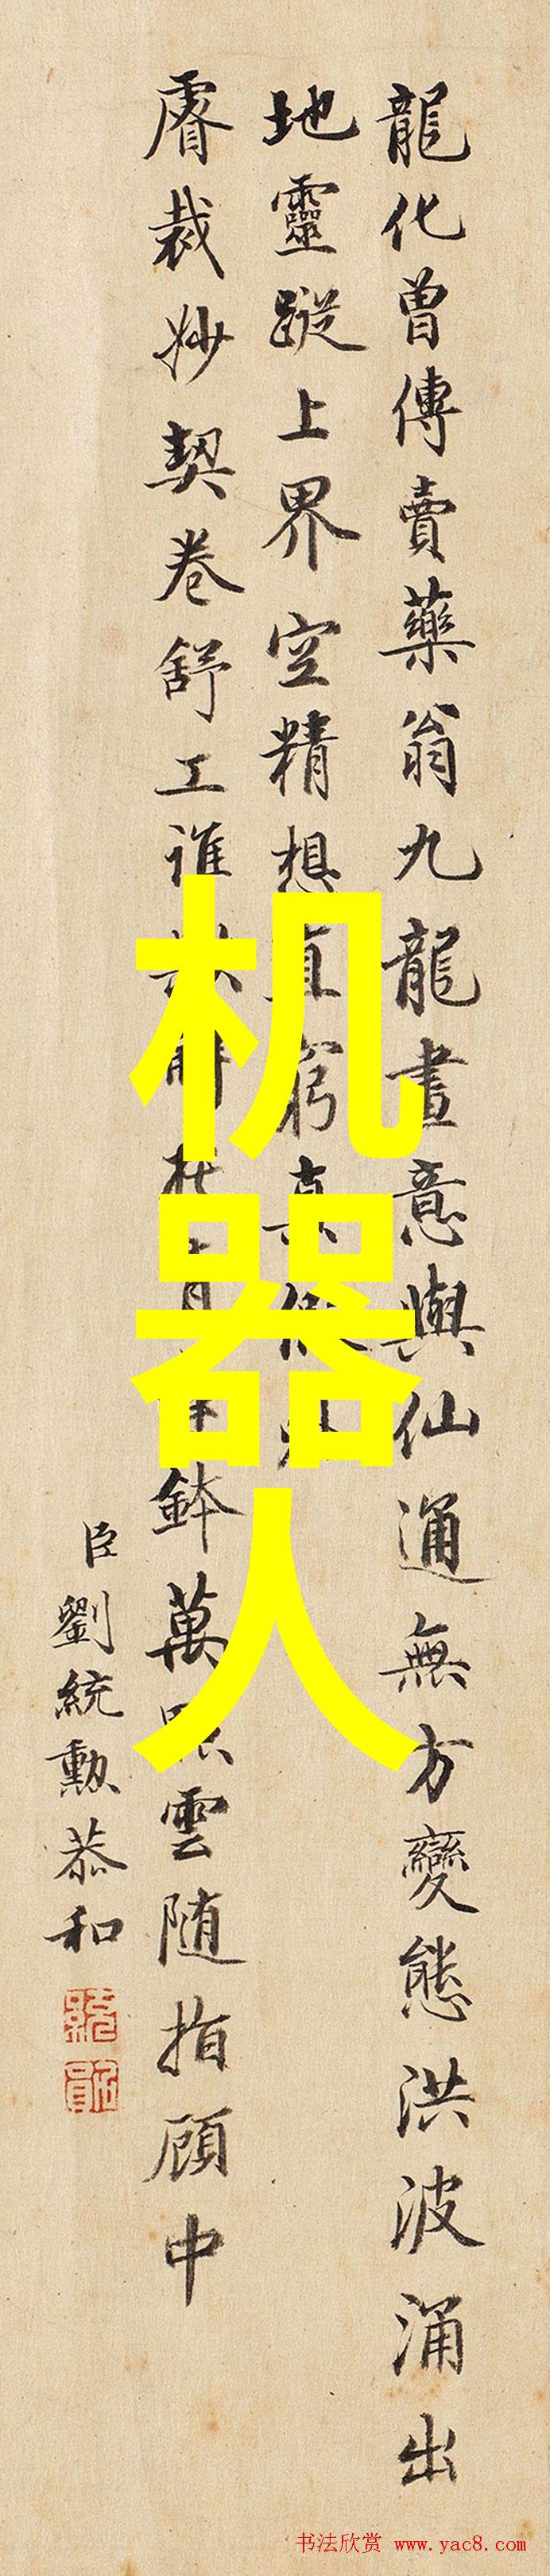 龍化曾傳賣藥翁九龍畫意與仙通無方變態洪波涌出
地靈蹤上界空精想直窮真
睿裁妙契卷舒工誰解鉢萬雲随指顧中
臣劉統勳恭和
机
器
人
书法欣赏 www.yac8.com